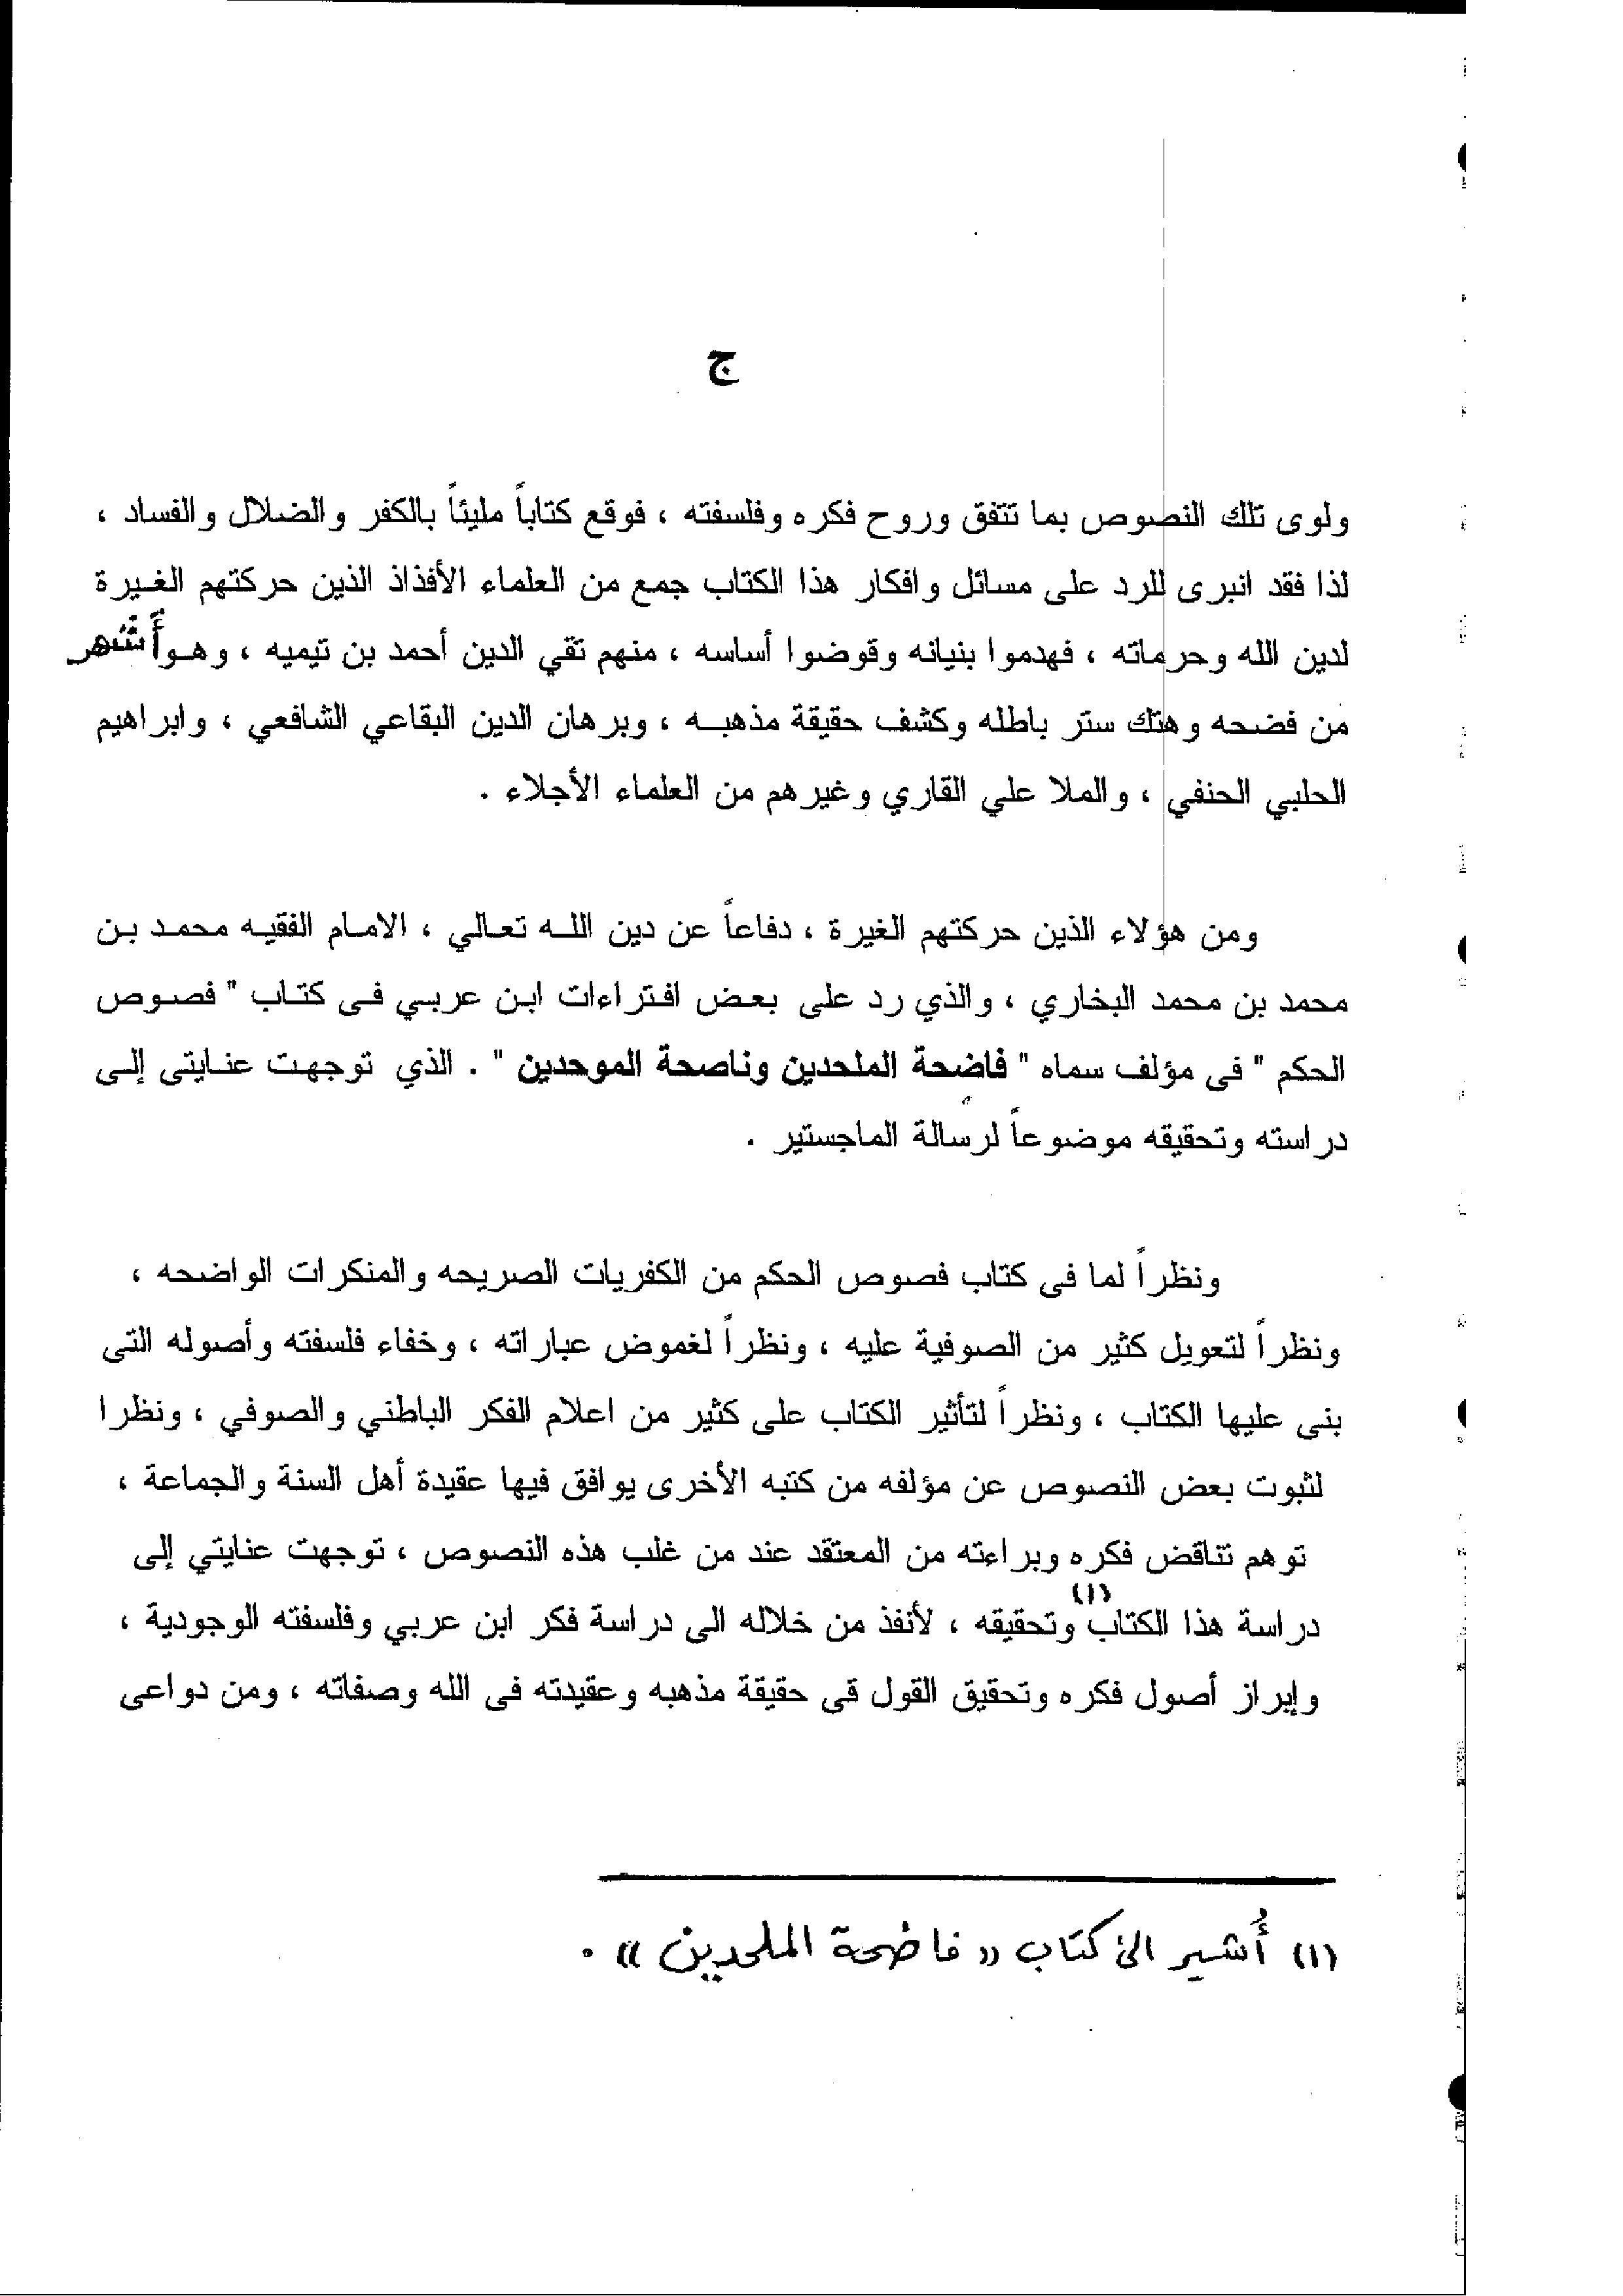 ج
ولوى تلك النصوص بما تتفق وروح فكره وفلسفته ، فوقع كتاباً مليئاً بالكفر والضلال والفساد ،
لذا فقد انبرى للرد على مسائل وافكار هذا الكتاب جمع من العلماء الأفذاذ الذين حركتهم الغيرة
لدين الله وحرماته ، فهدموا بنيانه وقوضوا أساسه ، منهم تقي الدين أحمد بن تيميه ، وهو أشهر
من فضحه وهتك ستر باطله وكشف حقيقة مذهبه ، وبرهان الدين البقاعي الشافعي ، وابراهيم
الحلبي الحنفي ، والملا علي القاري وغيرهم من العلماء الأجلاء .
ومن هؤلاء الذين حركتهم الغيرة ، دفاعاً عن دين الله تعالي ، الامام الفقيه محمد بن
محمد بن محمد البخاري ، والذي رد على بعض افتراءات ابن عربي فى كتاب " فصوص
الحكم " فى مؤلف سماه " فاضحة الملحدين وناصحة الموحدين " . الذي توجهت عنايتى إلى
دراسته وتحقيقه موضوعاً لرسالة الماجستير .
ونظراً لما فى كتاب فصوص الحكم من الكفريات الصريحه والمنكرات الواضحه ،
ونظراً لتعويل كثير من الصوفية عليه ، ونظراً لغموض عباراته ، وخفاء فلسفته وأصوله التى
بنى عليها الكتاب ، ونظراً لتأثير الكتاب على كثير من اعلام الفكر الباطني والصوفي ، ونظرا
لثبوت بعض النصوص عن مؤلفه من كتبه الأخرى يوافق فيها عقيدة أهل السنة والجماعة ،
توهم تناقض فكره وبراءته من المعتقد عند من غلب هذه النصوص ، توجهت عنايتي إلى
دراسة هذا الكتاب (١) وتحقيقه ، لأنفذ من خلاله الى دراسة فكر ابن عربي وفلسفته الوجودية ،
وإبراز أصول فكره وتحقيق القول قى حقيقة مذهبه وعقيدته فى الله وصفاته ، ومن دواعى
(١) أُشير الى كتاب « فاضحة الملحدين » .